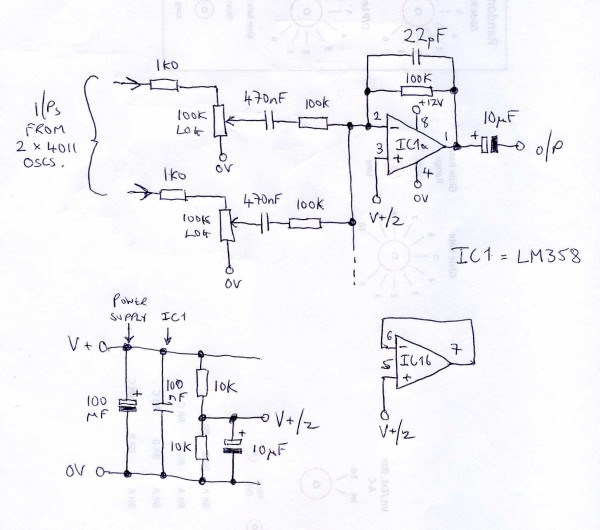 22pF
1k0
100k
I/Ps
FROM
2 x 4011
OSCS.
100k
LOG
470nF
100k
+12V
2
8
3
IC1a
1
10µF
O/P
4
0V
0V
V+/2
1k0
470nF
100k
100k
LOG
0V
IC1 = LM358
POWER
SUPPLY
IC1
V+
100
µF
+
100
nF
10k
V+/2
10k
+
10µF
0V
6
5
IC1b
7
V+/2